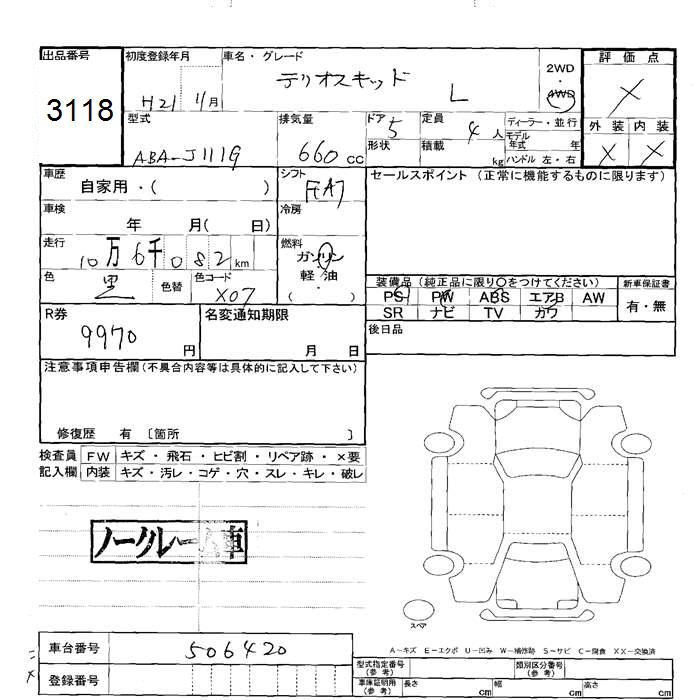 出品番号 3118
初度登録年月 H21 11月
車名・グレード テリオスキッド L
2WD・4WD
評価点 X
型式 ABA-J111G
排気量 660cc
ドア 5
形状
定員 4人
積載 kg
ディーラー・並行
モデル年式 年
ハンドル 左・右
外装 内装
X X
車歴 自家用・( )
シフト FA7
セールスポイント (正常に機能するものに限ります)
車検 年 月( 日)
冷房
走行 10万6千082km
燃料 ガソリン・軽油
( )
色 黒
色替
色コード X07
装備品 (純正品に限り○をつけてください)
PS PW ABS エアB AW
SR ナビ TV カワ
新車保証書
有・無
R券 9970円
名変通知期限 月 日
後日品
注意事項申告欄(不具合内容等は具体的に記入して下さい)
修復歴 有 〔箇所 〕
検査員 FW キズ・飛石・ヒビ割・リペア跡・×要
記入欄 内装 キズ・汚レ・コゲ・穴・スレ・キレ・破レ
ノークレーム車
スペア
A-キズ E-エクボ U-凹み W-補修跡 S-サビ C-腐食 XX-交換済
車台番号 506420
登録番号
型式指定番号(参考) 類別区分番号(参考)
車庫証明用(参考) 長さ cm 幅 cm 高さ cm